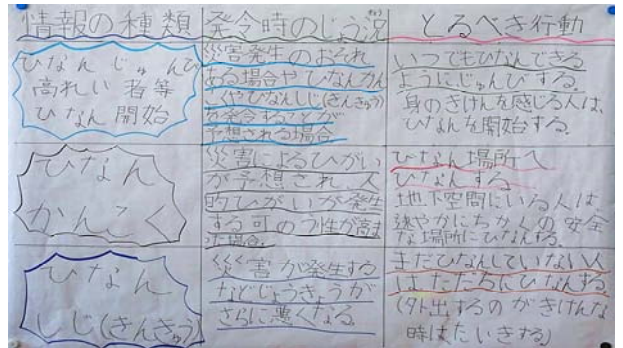 情報の種類
発令時のじょう況
とるべき行動
ひなんじゅんび
高れい者等
ひなん開始
災害発生のおそれ
ある場合やひなんかん
くやひなんしじ(きんきゅう)
を発令することが
予想される場合
いつでもひなんできる
ようにじゅんびする。
身のきけんを感じる人は、
ひなんを開始する。
ひなん
かんこく
災害によるひがい
が予想され、人
的ひがいが発生
する可のう性が高ま
った場合。
ひなん場所へ
ひなんする
地下空間にいる人は
速やかにちかくの安全
な場所にひなんする。
ひなん
しじ(きんきゅう)
災害が発生する
などじょうきょうが
さらに悪くなる。
まだひなんしていない人
はただちにひなんする
(外出するのがきけんな
時はたいきする)